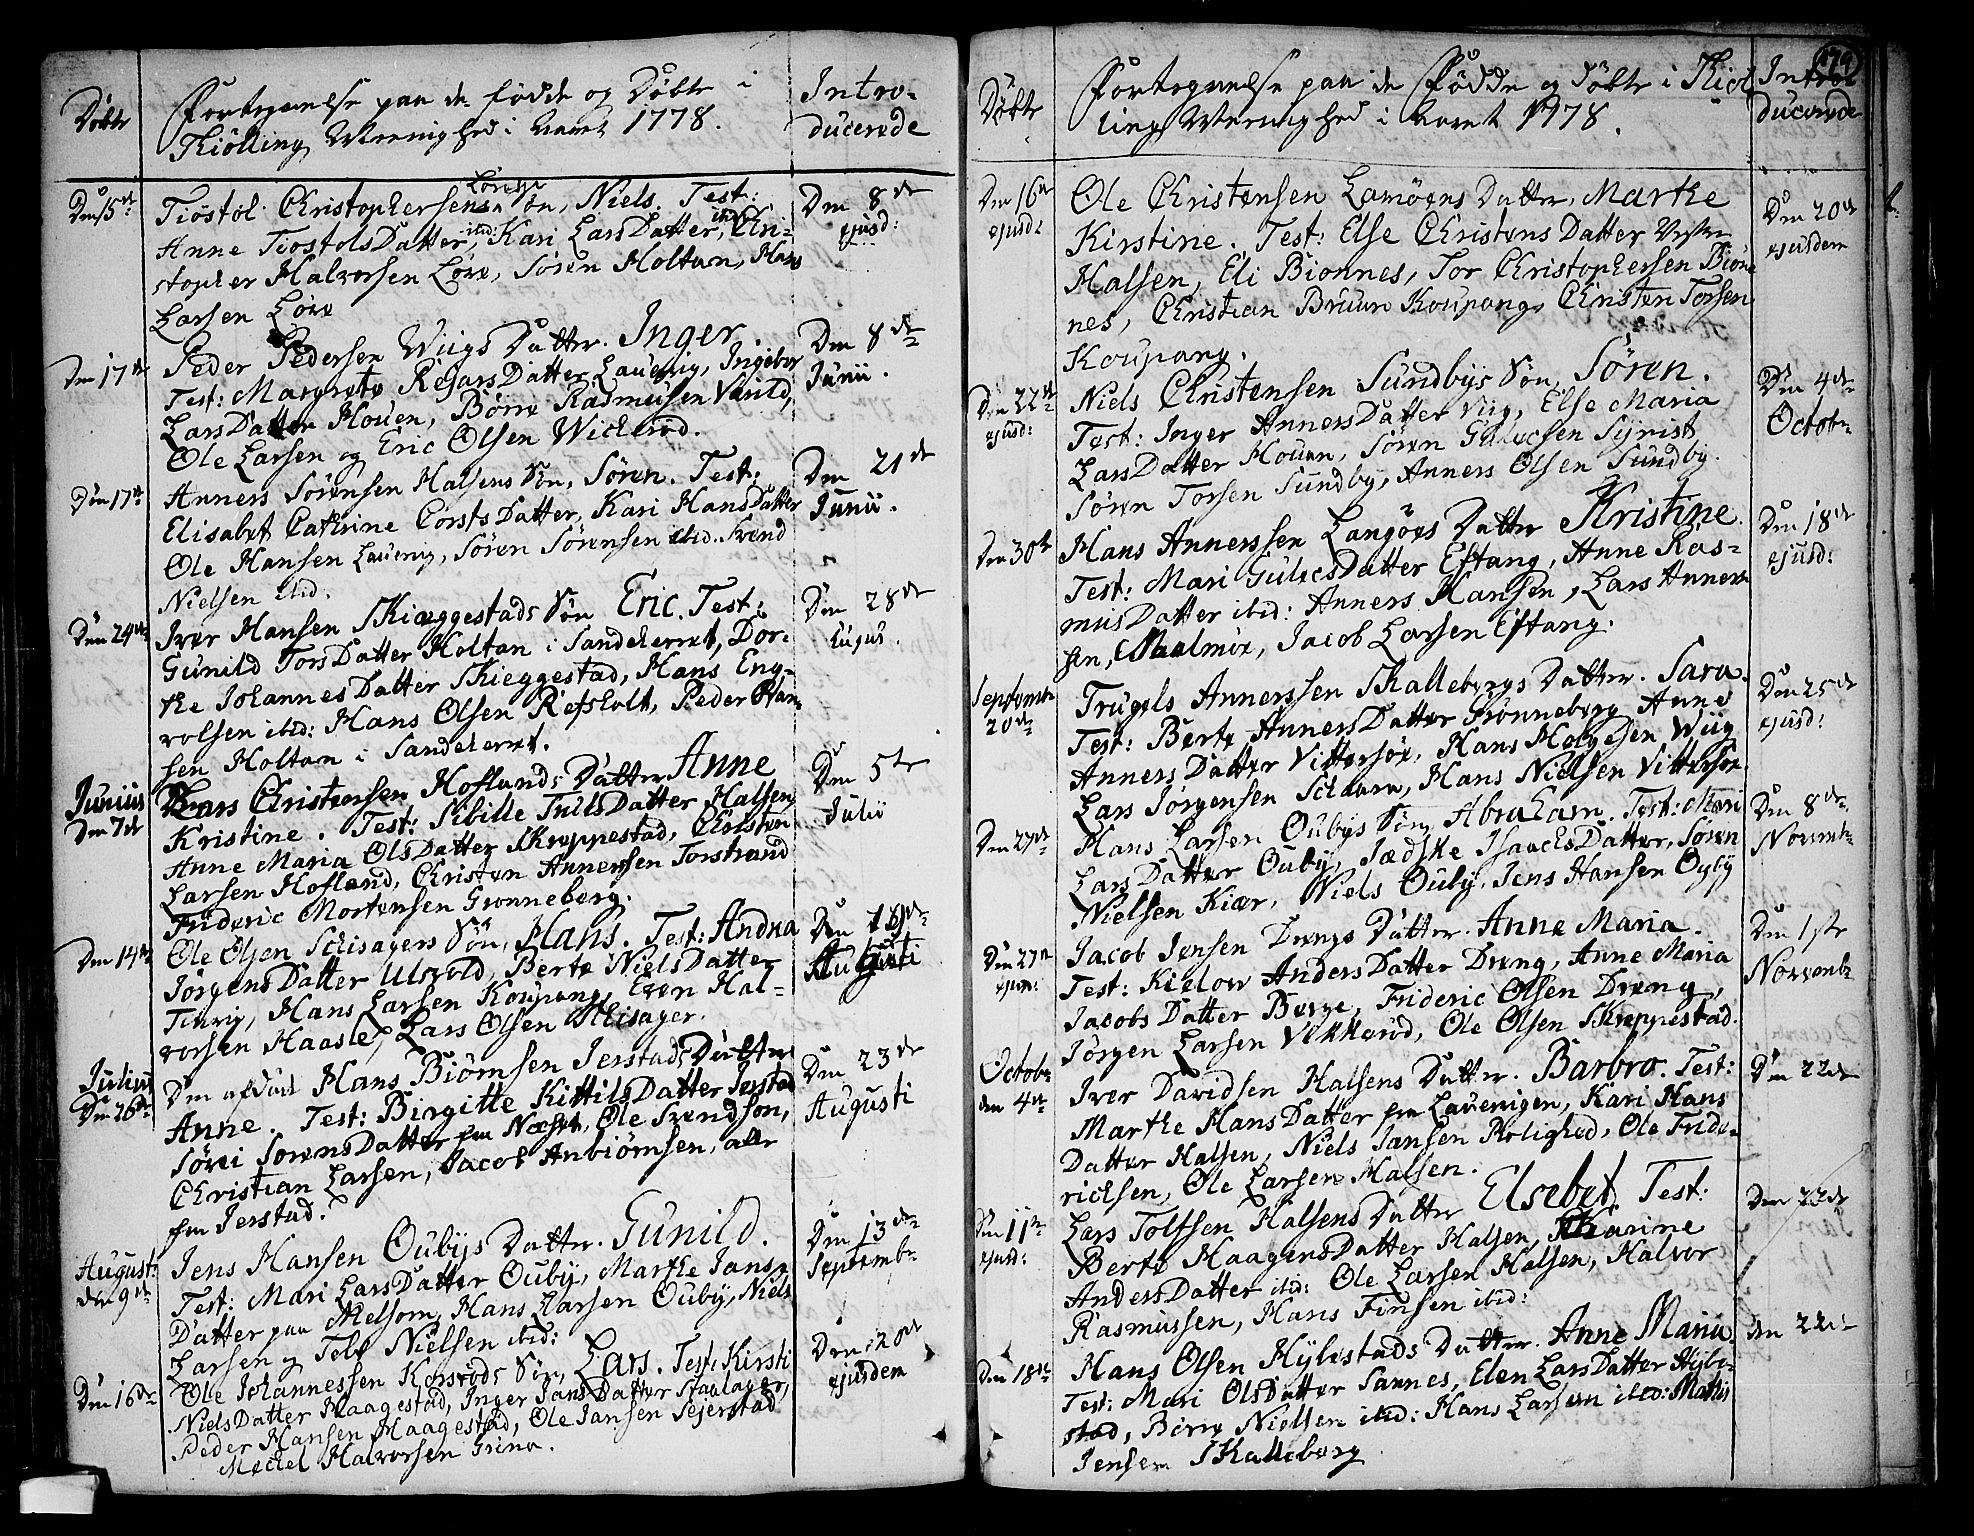 Døbte
Fortegnelse paa de fødde og Døbte i
Kiølling Meenighed i Aaret 1778.
Intro-
ducerede
Den 15de
Tiøstøl Christophersens Løves Søn, Niels. Test:
Anne TiostolsDatter ibid: Kari LarsDatter ibid: Chri-
stopher Halvorsen Løve, Søren Holtan, Hans
Larsen Løve
Den 8de
ejusd:
Den 17de
Peder Pedersen Wiigs Datter. Inger.
Test: Margrete ReiarsDatter Lauerig, Ingebor
LarsDatter Houen, Børre Rasmusen Varild,
Ole Larsen og Eric Olsen Wickerød.
Den 8de
Junii.
Den 17de
Anners Sørensen Halsens Søn, Søren. Test:
Elisabet Cathrine CorstsDatter, Kari HansDatter
Ole Hansen Lauerig, Søren Sørensen ibid. Svend
Nielsen ibid.
Den 21de
Junii.
Den 24de
Iver Hansen Skieggestads Søn Eric. Test:
Gunild TorsDatter Holtan i Sandeherret, Dor-
the JohannesDatter Skieggestad, Hans Eng-
volsen ibid: Hans Olsen Refsholt, Peder Han-
sen Holtan i Sandeherret.
Den 28de
hujus.
Junius
Den 7de
Lars Christensen Hoflands Datter Anne
Kristine. Test: Sibille TrulsDatter Halsen,
Anne Maria OlsDatter Skreppestad, Christen
Larsen Hofland, Christen Annersen Torstrand
Frideric Mortensen Grønneberg.
Den 5te
Julii
Den 14de
Ole Olsen Schisagers Søn, Hans. Test: Andrea
JørgensDatter Ulevold, Berte NielsDatter
Tinvig, Hans Larsen Koupang, Even Hal-
vorsen Haasle, Lars Olsen Schisager.
Den 16de
Augusti
Julius
Den 26de
Den afdøde Hans Biørnsen Jerstads Datter
Anne. Test: Birgitte KittilsDatter Jerstad
Sørei SorensDatter fra Næset, Ole Svendsøn,
Christian Larsen, Jacob Anbiørnsen, alle
fra Jerstad.
Den 23de
Augusti
August:
den 9de
Jens Hansen Oubys Datter. Gunild.
Test: Mari LarsDatter Ouby, Marthe Jans-
Datter paa Melsom, Hans Larsen Ouby, Niels
Larsen og Tolv Nielsen ibid:
Den 13de
Septembr
Den 16de
Ole Johannessen Korsrøds Søn, Lars. Test: Kirsti
NielsDatter Haagestad, Inger JansDatter Staalager,
Peder Hansen Haagestad, Ole Jansen Sejerstad
Mechel Halvorsen Grina.
Den 20de
ejusdem
179
Døbte
Fortegnelse paa de Fødde og døbte i Kiøl
ling Meenighed i Aaret 1778.
Intro
ducerede
Den 16de
ejusd:
Ole Christensen Lamøens Datter, Marthe
Kirstine. Test: Else ChristensDatter Vestre
Halsen, Eli Bionnes, Tor Christophersen Bion
nes, Christian Bruun Koupang, Christen Torsen
Koupang.
Den 20de
ejusdem
Den 22de
ejusd:
Niels Christensen Sundbys Søn, Søren.
Test: Inger AnnersDatter Viig, Else Maria
LarsDatter Houen, Søren Gulvesen Sijrist
Søren Torsen Sundby, Anners Olsen Sundby.
Den 4de
Octobr
Den 30te
Hans Annerssen Langøes Datter Kristine.
Test: Mari GulvesDatter Eftang, Anne Ras-
musDatter ibid: Anners Hansen, Lars Anner-
sen, Malmøe, Jacob Larsen Eftang.
Den 18de
ejusd:
Septembr
20de
Trugels Annerssen Skallebergs Datter. Sara.
Test: Berte AnnersDatter Grønneberg Anne
AnnersDatter Vittersøe, Hans Holgesen Wiig
Lars Jørgensen Schaara, Hans Nielsen Vittersøe
Den 25de
ejusd:
Den 27de
Hans Larsen Oubys Søn, Abraham. Test: Mari
LarsDatter Ouby, Jædske IsaachsDatter, Søren
Nielsen Kiær, Niels Ouby, Jens Hansen Ouby
Den 8de
Novembr
Den 27de
ejusd:
Jacob Jensen Drengs Datter. Anne Maria.
Test: Kielow AndersDatter Dreng, Anne Maria
JacobsDatter Berge, Frideric Olsen Dreng,
Jørgen Larsen Vekkerød, Ole Olsen Skreppestad.
Den 1ste
Novembr
Octobr
den 4de
Iver Davidsen Halsens Datter. Barbro. Test:
Marthe HansDatter fra Lauerigen, Kari Hans
Datter Halsen, Niels Jansen Rolighed, Ole Fride-
richsen, Ole Larsen Halsen.
Den 22de
Den 11te
ejusd:
Lars Tolfsen Halsens Datter Elsebet Test:
Berte HaagensDatter Halsen, Karine
AndersDatter ibid: Ole Larsen Halsen, Halvor
Rasmussen, Hans Finsen ibid:
Den 22de
Den 18de
Hans Olsen Hylestads Datter. Anne Maria
Test: Mari OlsDatter Sannes, Elen LarsDatter Hyle-
stad, Børre Nielsen ibid: Hans Larsen ibid: Mathis
Jensen Skalleberg
den 22de